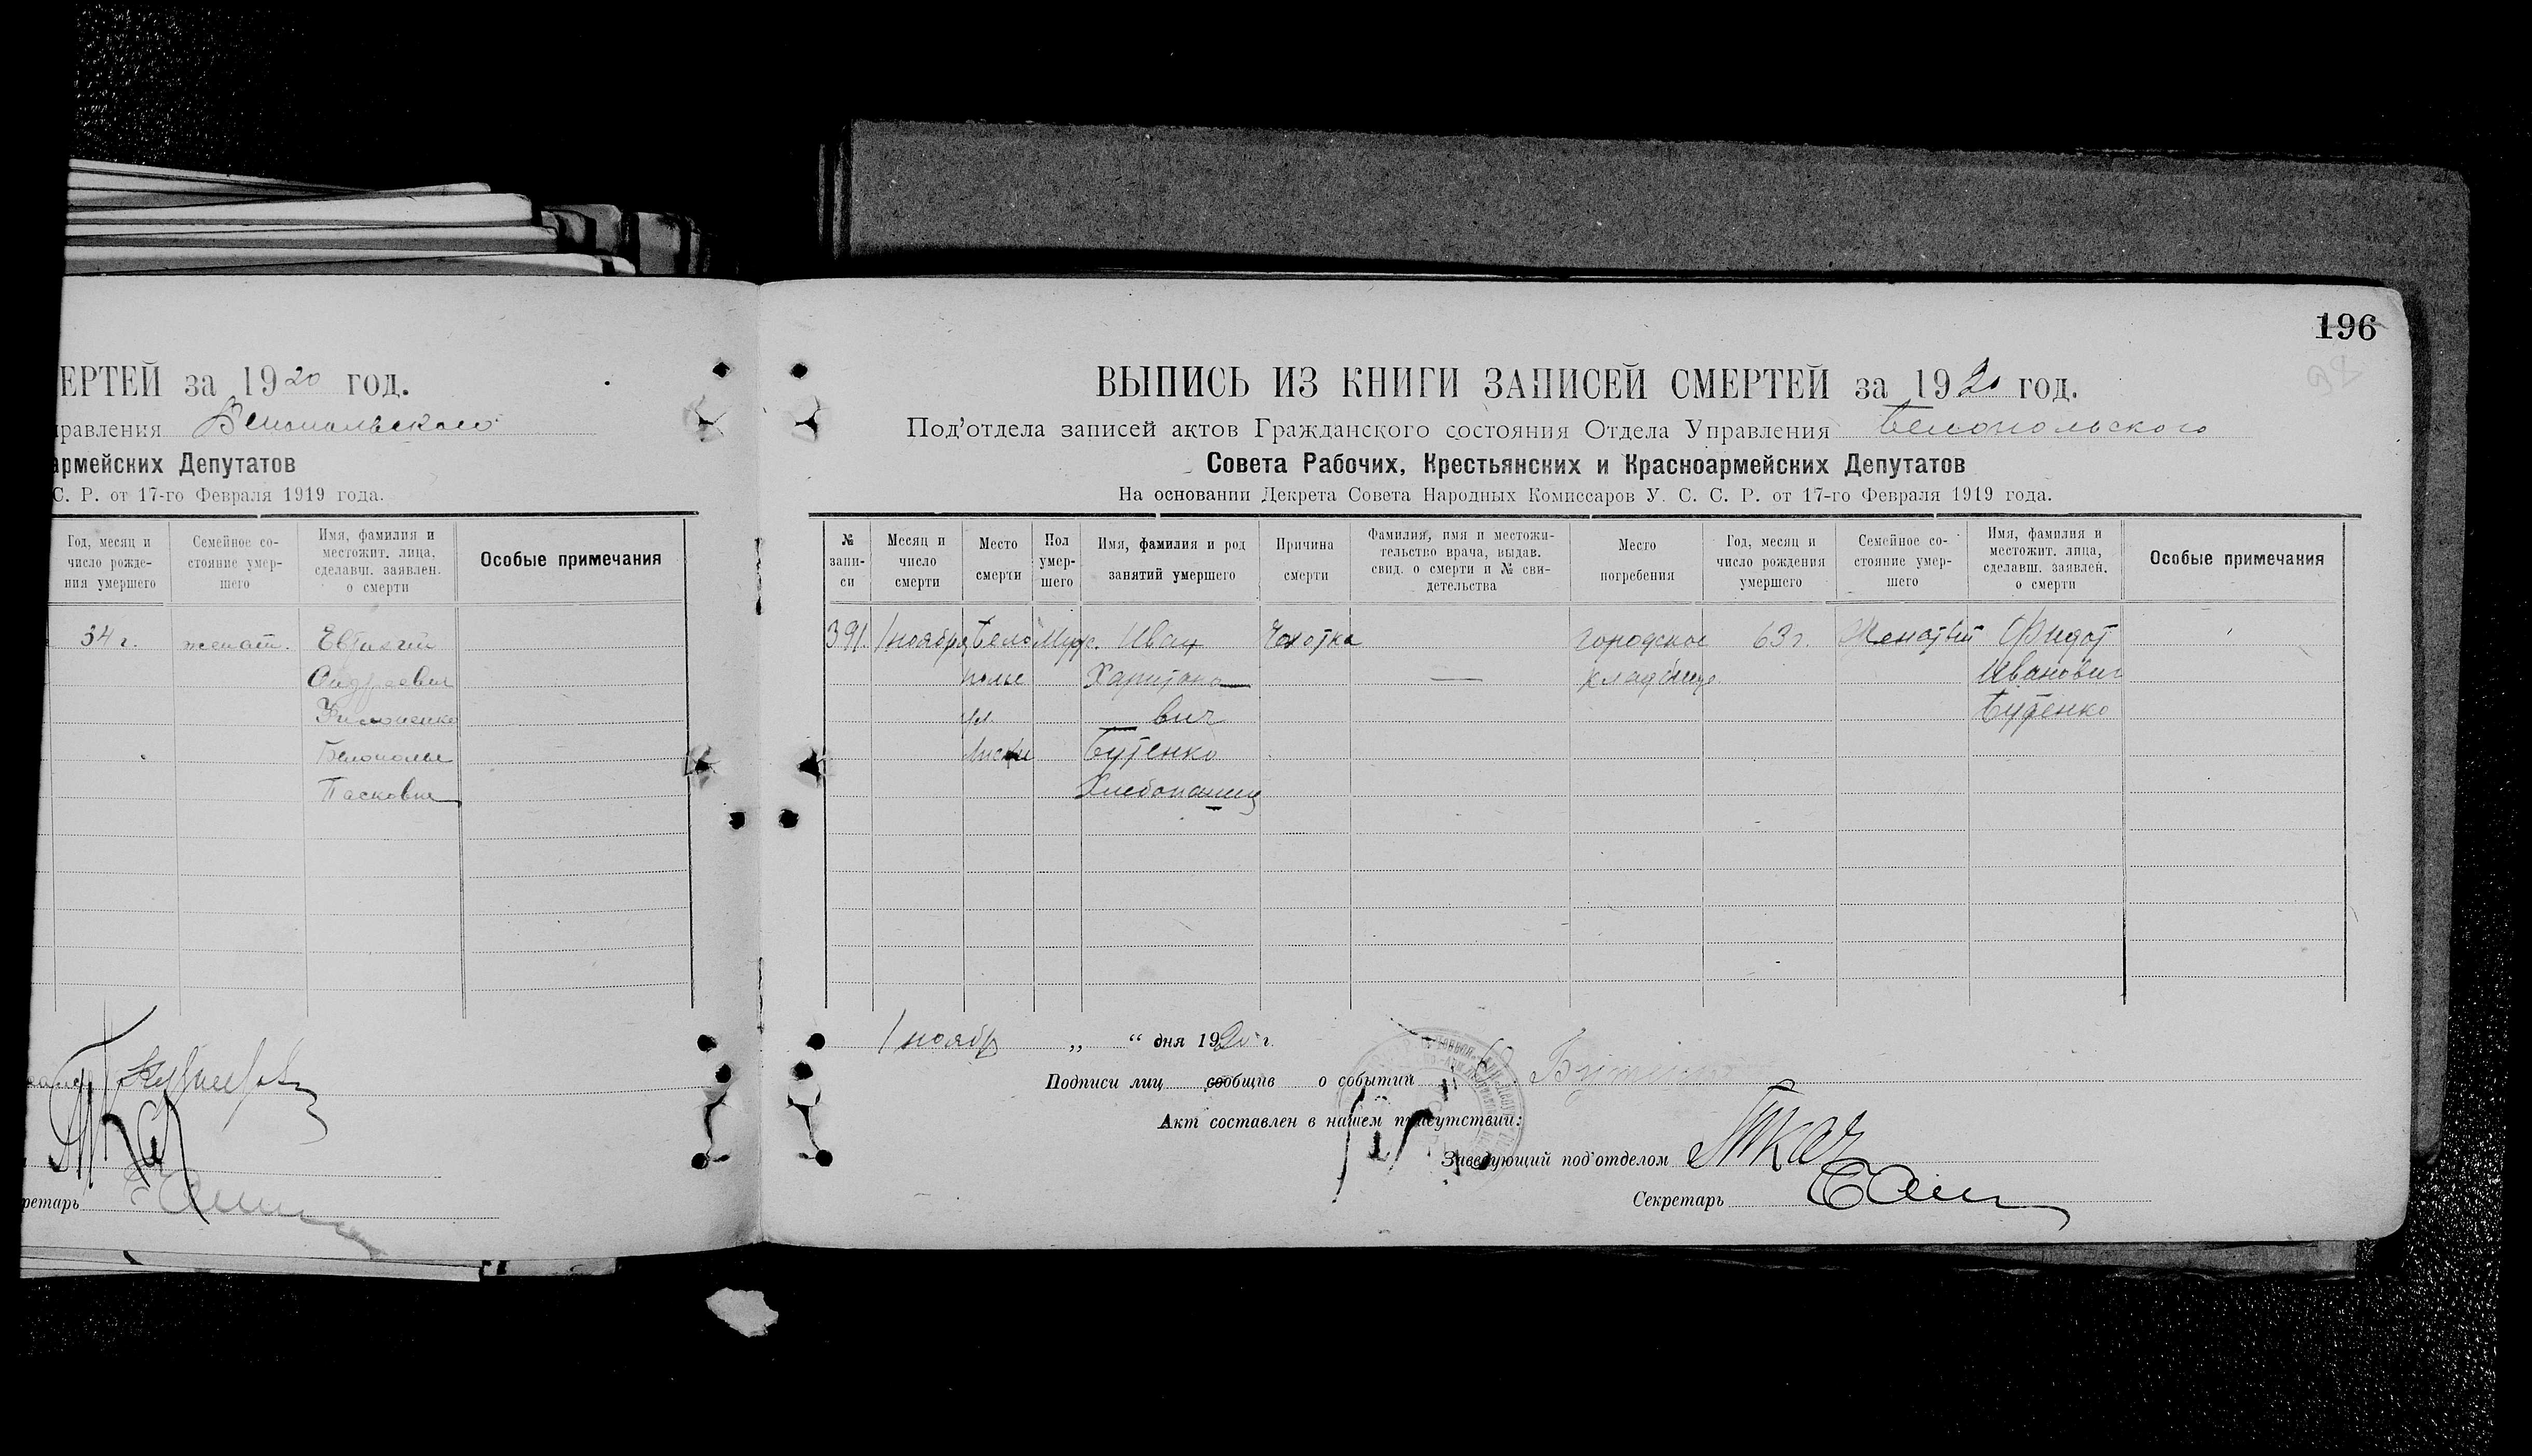 ЕРТЕЙ за 1920 год.
правления Белопольского
армейских Депутатов
С. Р. от 17-го Февраля 1919 года.
Год, месяц и
число рожде-
ния умершего
Семейное со-
стояние умер-
шего
Имя, фамилия и
местожит. лица,
сделавш. заявлен.
о смерти
Особые примечания
34 г. женат.
Андреевич
Белополье
ретарь
196
ВЫПИСЬ ИЗ КНИГИ ЗАПИСЕЙ СМЕРТЕЙ за 1920 год.
Под'отдела записей актов Гражданского состояния Отдела Управления Белопольского
Совета Рабочих, Крестьянских и Красноармейских Депутатов
На основании Декрета Совета Народных Комиссаров У. С. С. Р. от 17-го Февраля 1919 года.
№
запи-
си
Месяц и
число
смерти
Место
смерти
Пол
умер-
шего
Имя, фамилия и род
занятий умершего
Причина
смерти
Фамилия, имя и местожи-
тельство врача, выдав.
свид. о смерти и № сви-
детельства
Место
погребения
Год, месяц и
число рождения
умершего
Семейное со-
стояние умер-
шего
Имя, фамилия и
местожит. лица,
сделавш. заявлен.
о смерти
Особые примечания
391.
1 ноября
Бело
полье
ул.
Муж.
Иван
Харитоно
вич
Бутенко
Хлебопашец
Чахотка
—
городское
кладбище
63 г.
Женатый
Федот
Иванович
Бутенко
1 ноябр „ “ дня 1920 г.
Подписи лиц сообщив о событии Бутенко
Акт составлен в нашем присутствии:
Заведующий под'отделом Ткач
Секретарь